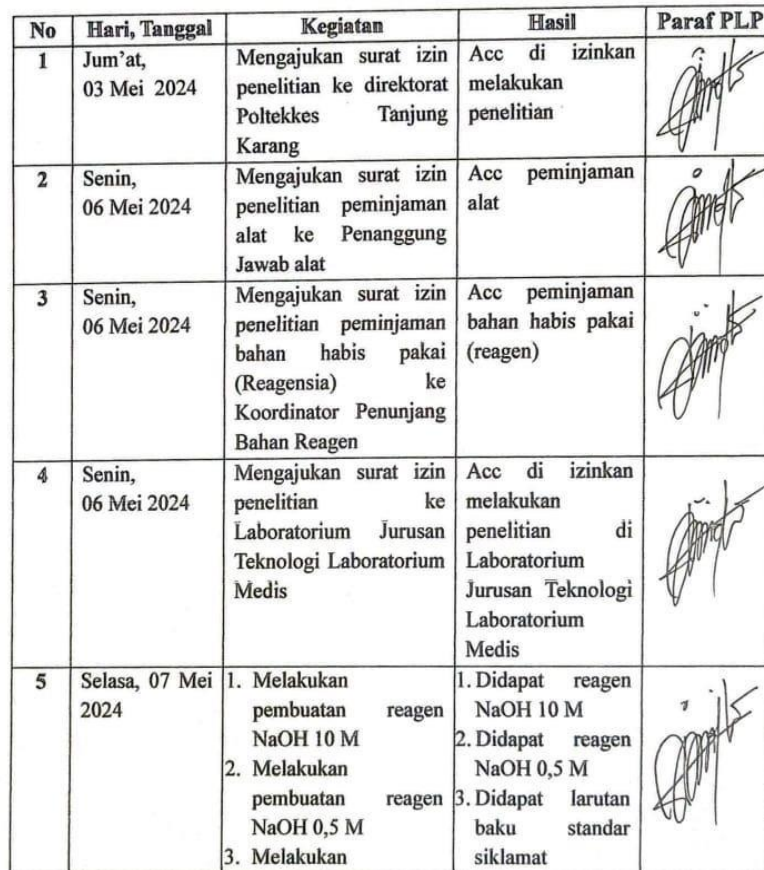 No Hari, Tanggal Kegiatan Hasil Paraf PLP
1
Jum'at,
03 Mei 2024
Mengajukan surat izin
penelitian ke direktorat
Poltekkes Tanjung
Karang
Acc di izinkan
melakukan
penelitian
2
Senin,
06 Mei 2024
Mengajukan surat izin
penelitian peminjaman
alat ke Penanggung
Jawab alat
Acc peminjaman
alat
3
Senin,
06 Mei 2024
Mengajukan surat izin
penelitian peminjaman
bahan habis pakai
(Reagensia) ke
Koordinator Penunjang
Bahan Reagen
Acc peminjaman
bahan habis pakai
(reagen)
4
Senin,
06 Mei 2024
Mengajukan surat izin
penelitian ke
Laboratorium Jurusan
Teknologi Laboratorium
Medis
Acc di izinkan
melakukan
penelitian di
Laboratorium
Jurusan Teknologi
Laboratorium
Medis
5
Selasa, 07 Mei
2024
1. Melakukan
pembuatan reagen
NaOH 10 M
2. Melakukan
pembuatan reagen
NaOH 0,5 M
3. Melakukan
1. Didapat reagen
NaOH 10 M
2. Didapat reagen
NaOH 0,5 M
3. Didapat larutan
baku standar
siklamat